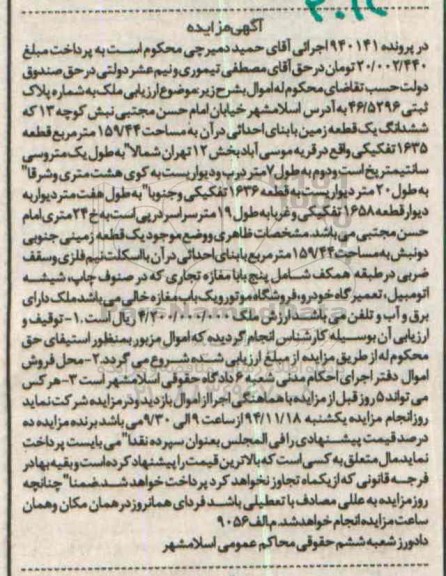 آگهی مزایده
در پرونده ۹۴۰۱۴۱ اجرائی آقای حمید دمیرچی محکوم است به پرداخت مبلغ
۲۰/۰۰۲/۴۴۰ تومان در حق آقای مصطفی تیموری و نیم عشر دولتی در حق صندوق
دولت حسب تقاضای محکوم له اموال بشرح زیر: موضوع ارزیابی ملک به شماره پلاک
ثبتی ۴۶/۵۲۹۶ به آدرس اسلامشهر خیابان امام حسن مجتبی نبش کوچه ۱۳ که
ششدانگ یک قطعه زمین با بنای احداثی در آن به مساحت ۱۵۹/۴۴ متر مربع قطعه
۱۶۳۵ تفکیکی واقع در قریه موسی آباد بخش ۱۲ تهران شمالا" به طول یک متر و سی
سانتیمتر پخ است و دوم به طول ۷ متر درب و دیواریست به کوی هشت متری و شرقا"
به طول ۲۰ متر دیواریست به قطعه ۱۶۳۶ تفکیکی و جنوبا" به طول هفت متر دیوار به
دیوار قطعه ۱۶۵۸ تفکیکی و غربا به طول ۱۹ متر سراسر در پی است به خ ۲۴ متری امام
حسن مجتبی می باشد. مشخصات ظاهری و وضع موجود یک قطعه زمینی جنوبی
دو نبش به مساحت ۱۵۹/۴۴ متر مربع با بنای احداثی در آن با اسکلت نیم فلزی و سقف
ضربی در طبقه همکف شامل پنج باب مغازه تجاری که در صنوف چاپ، شیشه
اتومبیل، تعمیرگاه خودرو، فروشگاه موتور و یک باب مغازه خالی می باشد ملک دارای
برق و آب و تلفن می باشد. ارزش ملک ریال است. ۱- توقیف و
ارزیابی آن بوسیله کارشناس انجام گردیده که اموال مزبور بمنظور استیفای حق
محکوم له از طریق مزایده از مبلغ ارزیابی شده شروع می گردد. ۲- محل فروش
اموال دفتر اجرای احکام مدنی شعبه ۶ دادگاه حقوقی اسلامشهر است ۳- هر کس
می تواند ۵ روز قبل از مزایده با هماهنگی اجرا از اموال بازدید و در مزایده شرکت نماید
روز انجام مزایده یکشنبه ۹۴/۱۱/۱۸ از ساعت ۹ الی ۹/۳۰ می باشد برنده مزایده ده
درصد قیمت پیشنهادی را فی المجلس بعنوان سپرده نقدا" می بایست پرداخت
نماید مال متعلق به کسی است که بالاترین قیمت را پیشنهاد کرده است و بقیه بها در
فرجه قانونی که از یکماه تجاوز نخواهد کرد پرداخت خواهد شد ضمنا" چنانچه
روز مزایده به عللی مصادف با تعطیلی باشد فردای همانروز در همان مکان و همان
ساعت مزایده انجام خواهد شد. م الف ۹۰۵۶
دادورز شعبه ششم حقوقی محاکم عمومی اسلامشهر